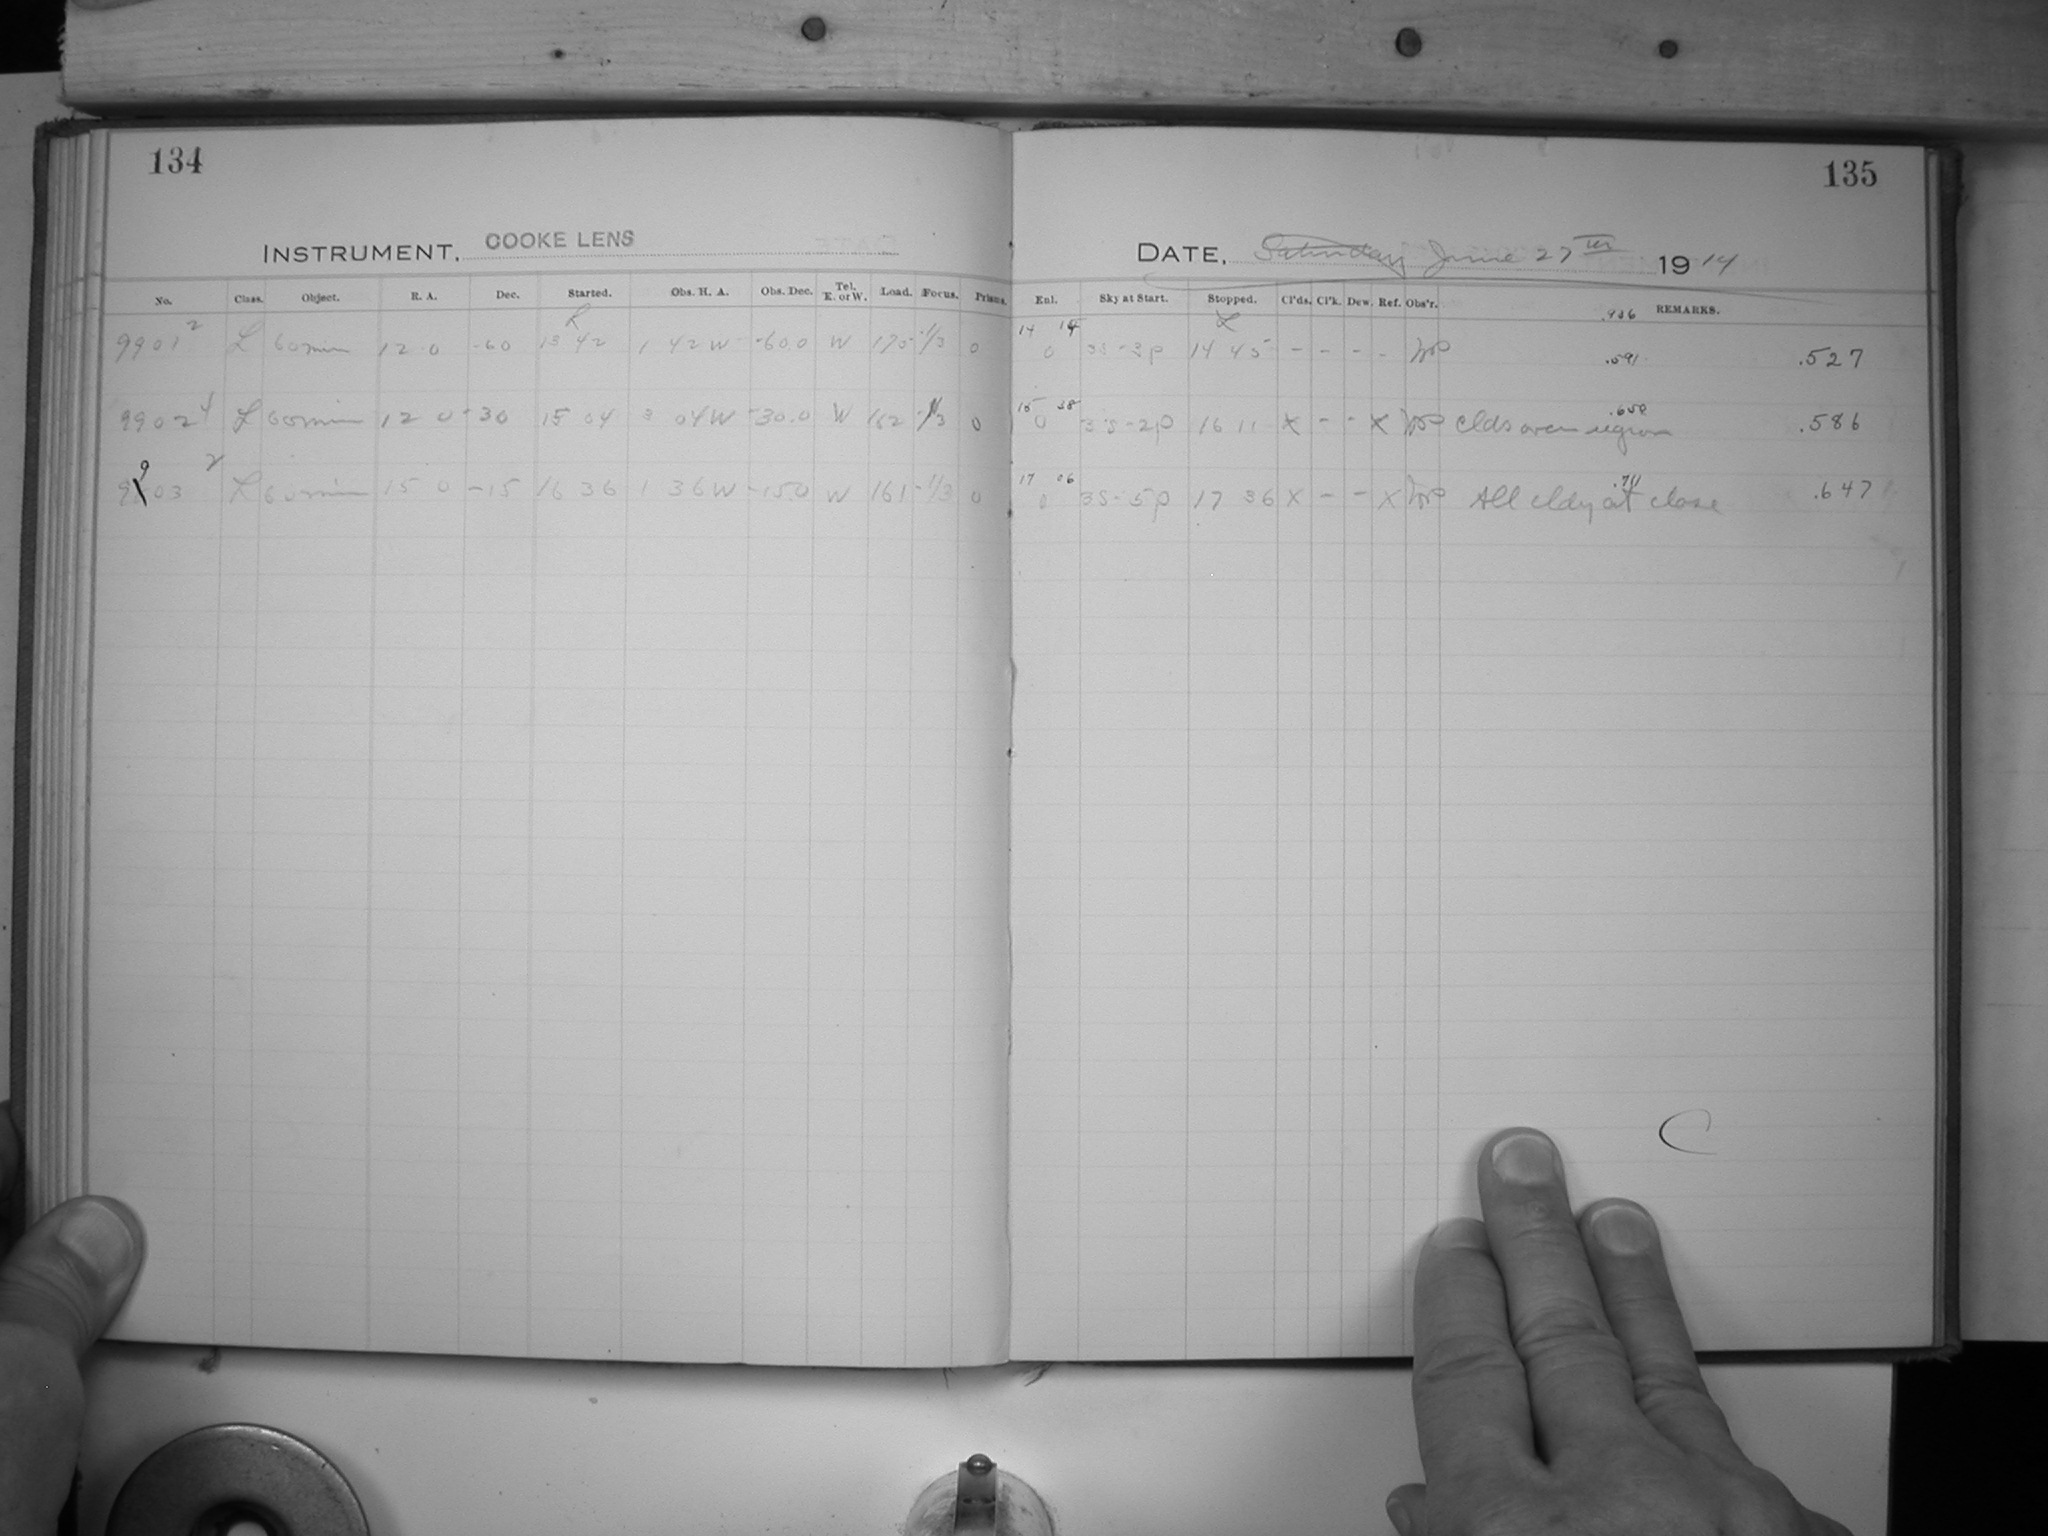 134
INSTRUMENT, COOKE LENS
No. Class. Object. R. A. Dec. Started. Obs. H. A. Obs. Dec. Tel. E. or W. Load. Focus. Prisms.
9901 2 L 60 min 12 0 -60 13 42 1 42 W -60.0 W 170 -1/3 0
9902 4 L 60 min 12 0 -30 15 04 3 04 W -30.0 W 162 -1/3 0
9903 2 L 60 min 15 0 -15 16 36 1 36 W -15.0 W 161 -1/3 0
135
DATE, Saturday June 27th 1914
Enl. Sky at Start. Stopped. Cl'ds. Cl'k. Dew. Ref. Obs'r. REMARKS.
.936
14 14
0 3S-3p 14 45 - - - - .591 .527
15 38 .650
0 3S-2p 16 11 X - - X Clds over region .586
17 06 .711
0 3S-5p 17 36 X - - X All cldy at close .647
C